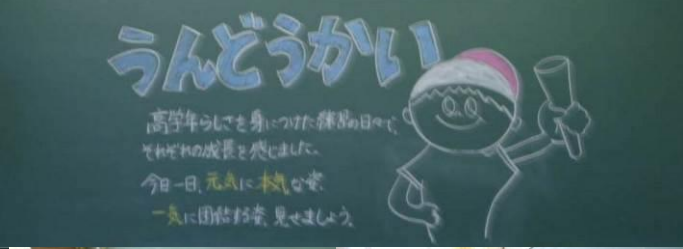 うんどうかい
高学年らしさを身につけた練習の日々で、
それぞれの成長を感じました。
今日一日、元気に本気な姿、
一気に団結する姿、見せましょう。